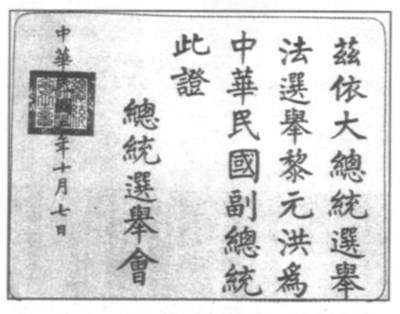 茲依大總統選舉
法選舉黎元洪為
中華民國副總統
此證
總統選舉會
中華民國年十月七日